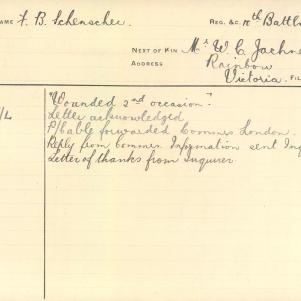 NAME F. B. Schenscher REG. &C. 10th Battln
NEXT OF KIN Mr W. C. Jaehne
ADDRESS Rainbow
Victoria. FIL
"Wounded 2nd occasion"
/L Letter acknowledged
P/Cable forwarded Commrs London.
Reply from Commrs Information sent Inq
Letter of thanks from Inquirer